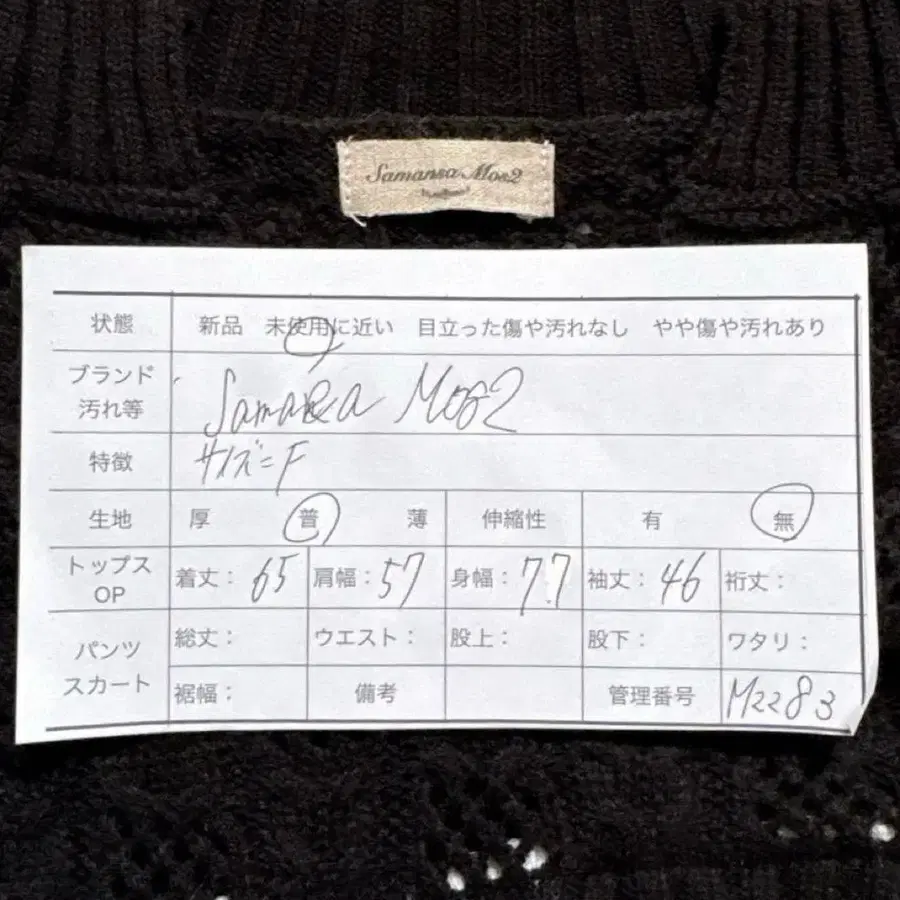 Samansa Mos2
状態 新品 未使用に近い 目立った傷や汚れなし やや傷や汚れあり
ブランド
汚れ等 Samansa Mos2
特徴 サイズ=F
生地 厚 普 薄 伸縮性 有 無
トップス
OP 着丈: 65 肩幅: 57 身幅: 77 袖丈: 46 裄丈:
パンツ
スカート
総丈: ウエスト: 股上: 股下: ワタリ:
裾幅: 備考 管理番号 M2283